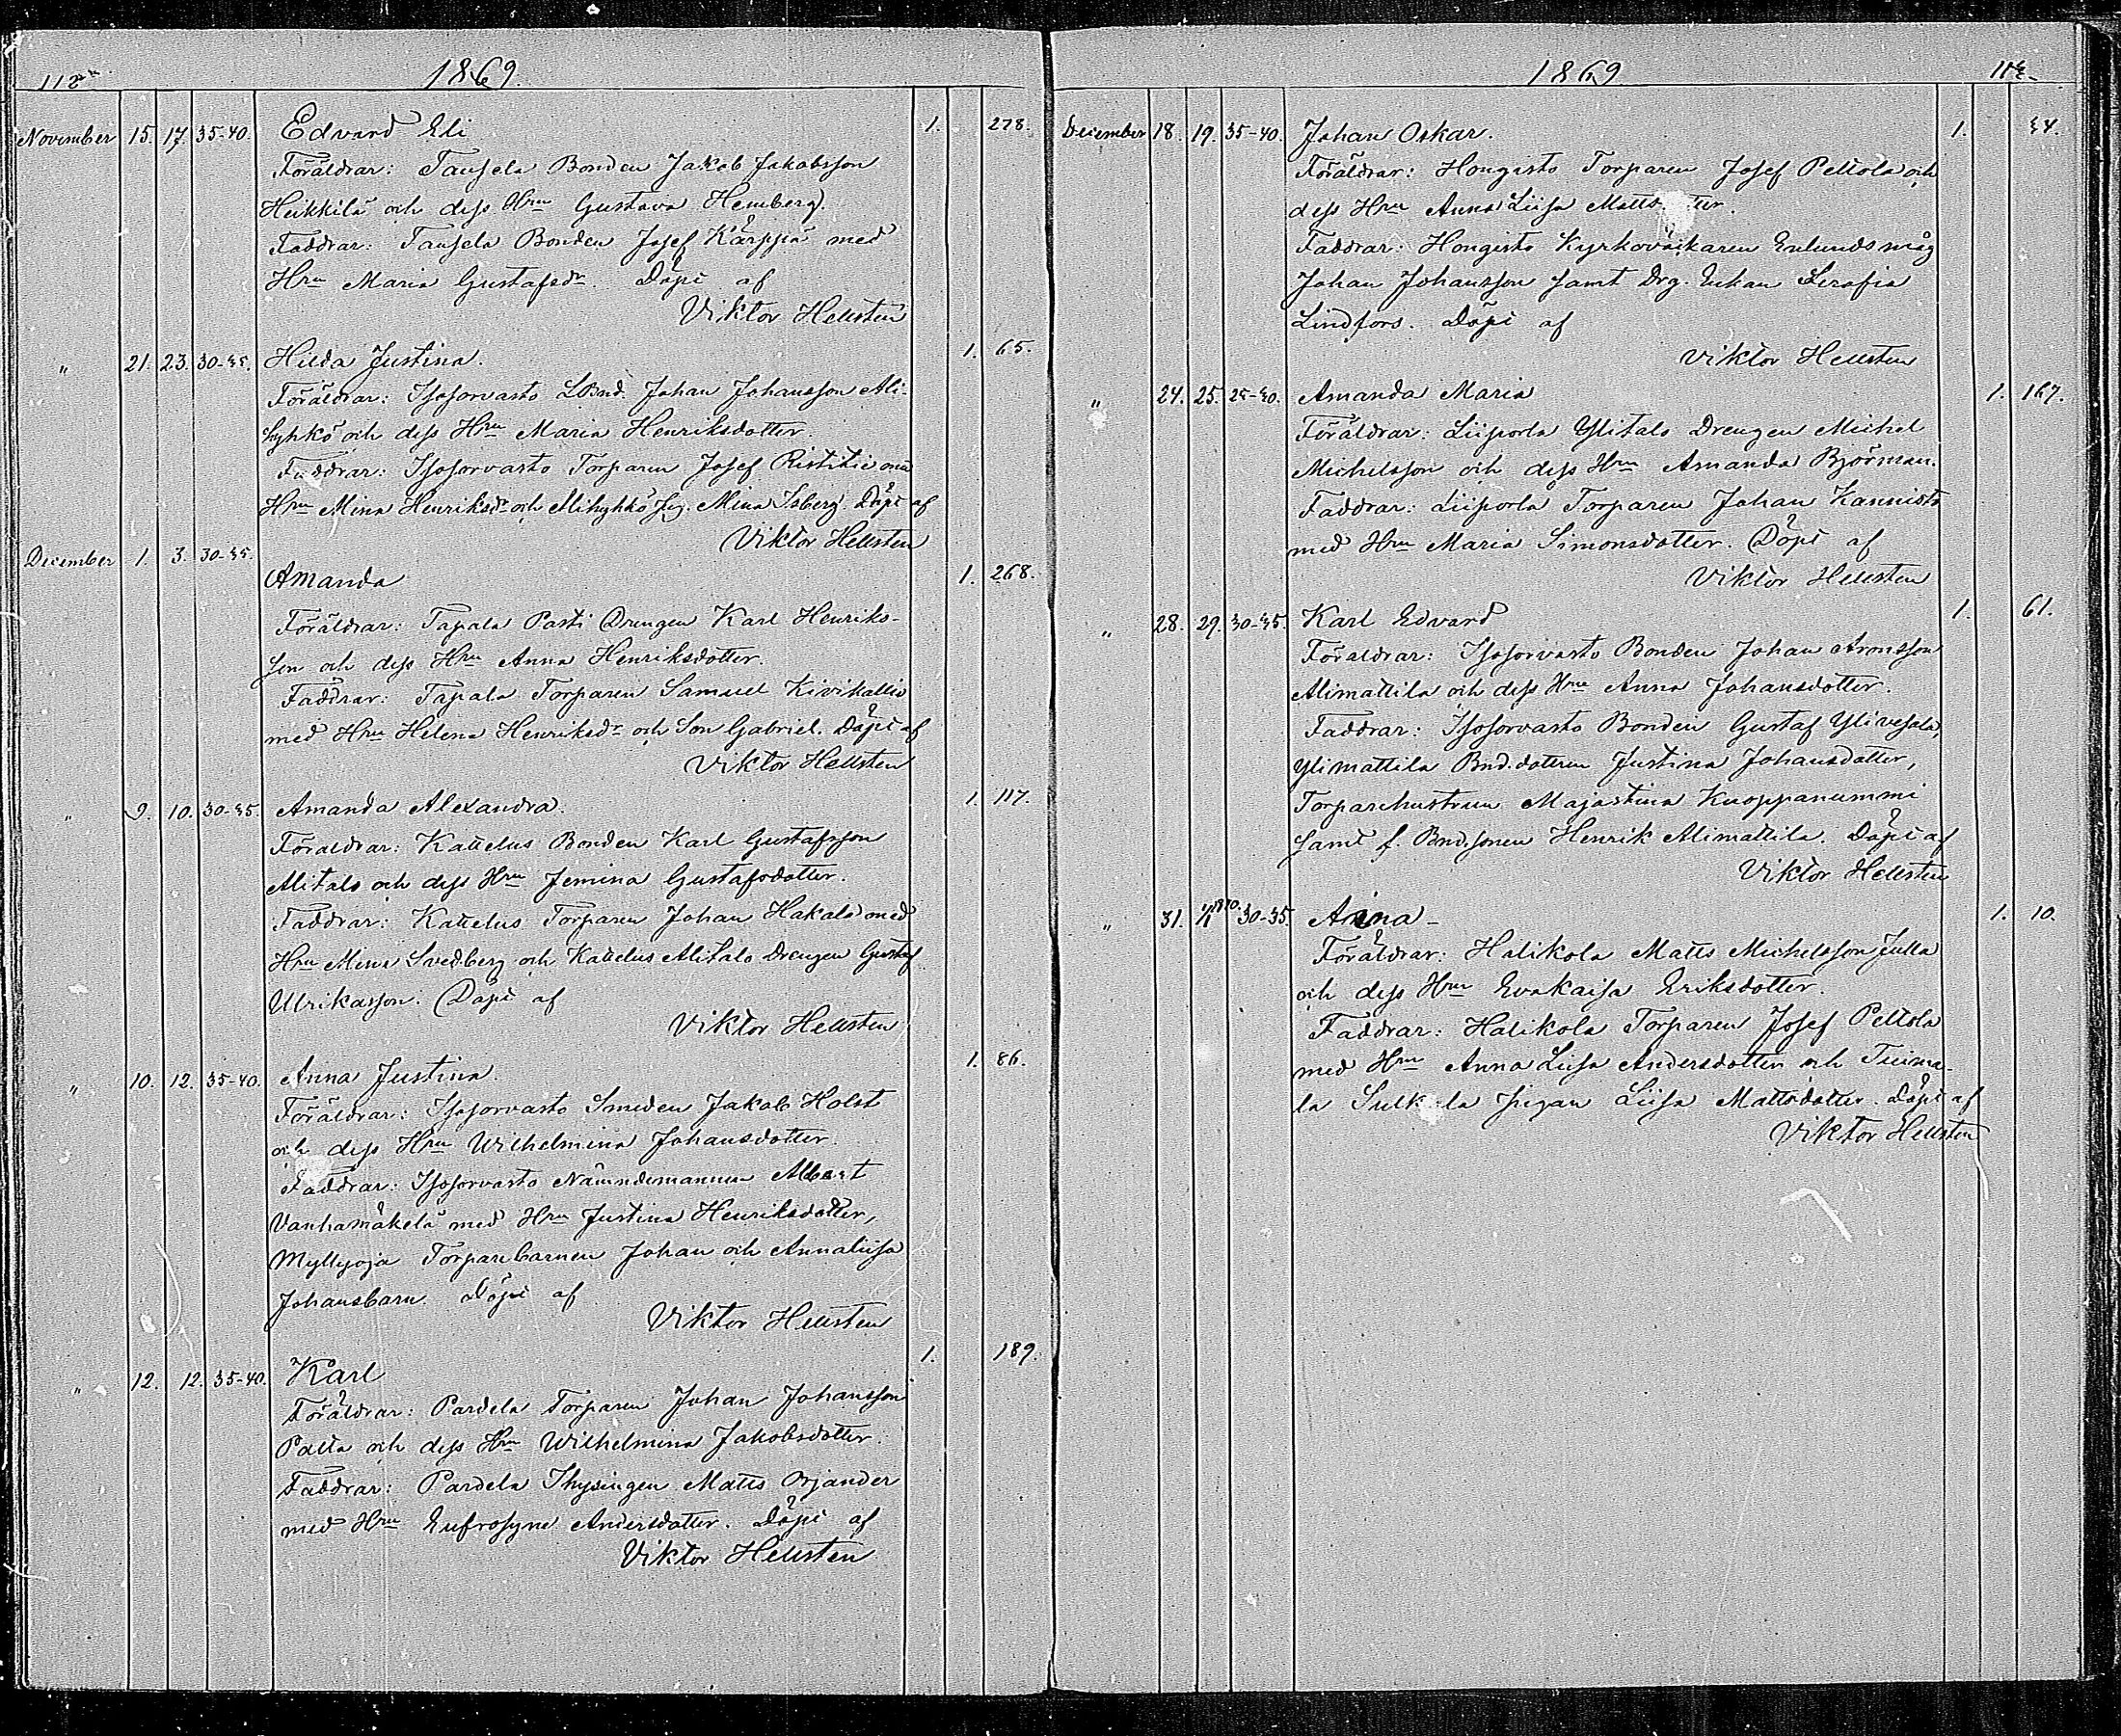 1869.
November 15. 17. 35-40. Edvard Eli 1. 278.
Föräldrar: Tausela Bonden Jakob Jakobsson
Heikkilä och dess Hru Gustava Hemberg.
Faddrar: Tausela Bonden Josef Kärppä med
Hru Maria Gustafsdr. Döpt af
Viktor Hellsten
" 21. 23. 30-35. Hilda Justina. 1. 65.
Föräldrar: Isosorvasto LBnd. Johan Johansson Ali-
hyhkö och dess Hru Maria Henriksdotter.
Faddrar: Isosorvasto Torparen Josef
Hru Mina Henriksdr och Alihyhkö Mina Isberg. Döpt af
Viktor Hellsten
December 1. 3. 30-35.
Amanda 1. 268.
Föräldrar: Tapala Pasti Drengen Karl Henriks-
son och dess Hru Anna Henriksdotter.
Faddrar: Tapala Torparen Samuel Kivikallio
med Hru Helena Henriksdr och Son Gabriel. Döpt af
Viktor Hellsten
" 9. 10. 30-35. Amanda Alexandra. 1. 117.
Föräldrar: Kattelus Bonden Karl Gustafsson
Alitalo och dess Hru Jemina Gustafsdotter.
Faddrar: Kattelus Torparen Johan Hakala med
Hru Mina Svedberg och Kattelus Alitalo Drengen Gustaf
Ulrikasson. Döpt af
Viktor Hellsten
" 10. 12. 35-40. Anna Justina. 1. 86.
Föräldrar: Isosorvasto Smeden Jakob Holst
och dess Hru Wilhelmina Johansdotter.
Faddrar: Isosorvasto Nämndemannen Albert
Vanhamäkelä med Hru Justina Henriksdotter,
Myllyoja Torparebarnen Johan och Annaliisa
Johansbarn. Döpt af
Viktor Hellsten
" 12. 12. 35-40. Karl 1. 189.
Föräldrar: Pardela Torparen Johan Johansson
Palta och dess Hru Wilhelmina Jakobsdotter.
Faddrar: Pardela Matts Björnander
med Hru Eufrosyne Andersdotter. Döpt af
Viktor Hellsten
1869
December 18. 19. 35-40. Johan Oskar. 1. 34.
Föräldrar: Hongisto Torparen Josef Peltola och
dess Hru Anna Liisa
Faddrar: Hongisto Kyrkoväktaren Enlunds måg
Johan Johansson samt Drg. Enkan Serafia
Lindfors. Döpt af
Viktor Hellsten
" 24. 25. Amanda Maria 1. 167.
Föräldrar: Liiporla Ylitalo Drengen Michel
Michelsson och dess Hru Amanda Björman.
Faddrar: Liiporla Torparen Johan Kannisto
med Hru Maria Simonsdotter. Döpt af
Viktor Hellsten
" 28. 29. 30-35. Karl Edvard 1. 61.
Föräldrar: Isosorvasto Bonden Johan Aronsson
Alimattila och dess Hru Anna Johansdotter.
Faddrar: Isosorvasto Bonden Gustaf Ylivesala,
Ylimattila Bnd.dottren Justina Johansdotter,
Torparehustrun Majastina Knoppanummi
samt f. Bnd.sonen Henrik Alimattila. Döpt af
Viktor Hellsten
" 31. 1/1 1870. 30-35. Anna 1. 10.
Föräldrar: Halikola Matts Michelsson Julla
och dess Hru Evakaisa Eriksdotter.
Faddrar: Halikola Torparen Josef Peltola
med Hru Anna Liisa Andersdotter och Tuima-
la pigan Liisa Mattsdotter. Döpt af
Viktor Hellsten